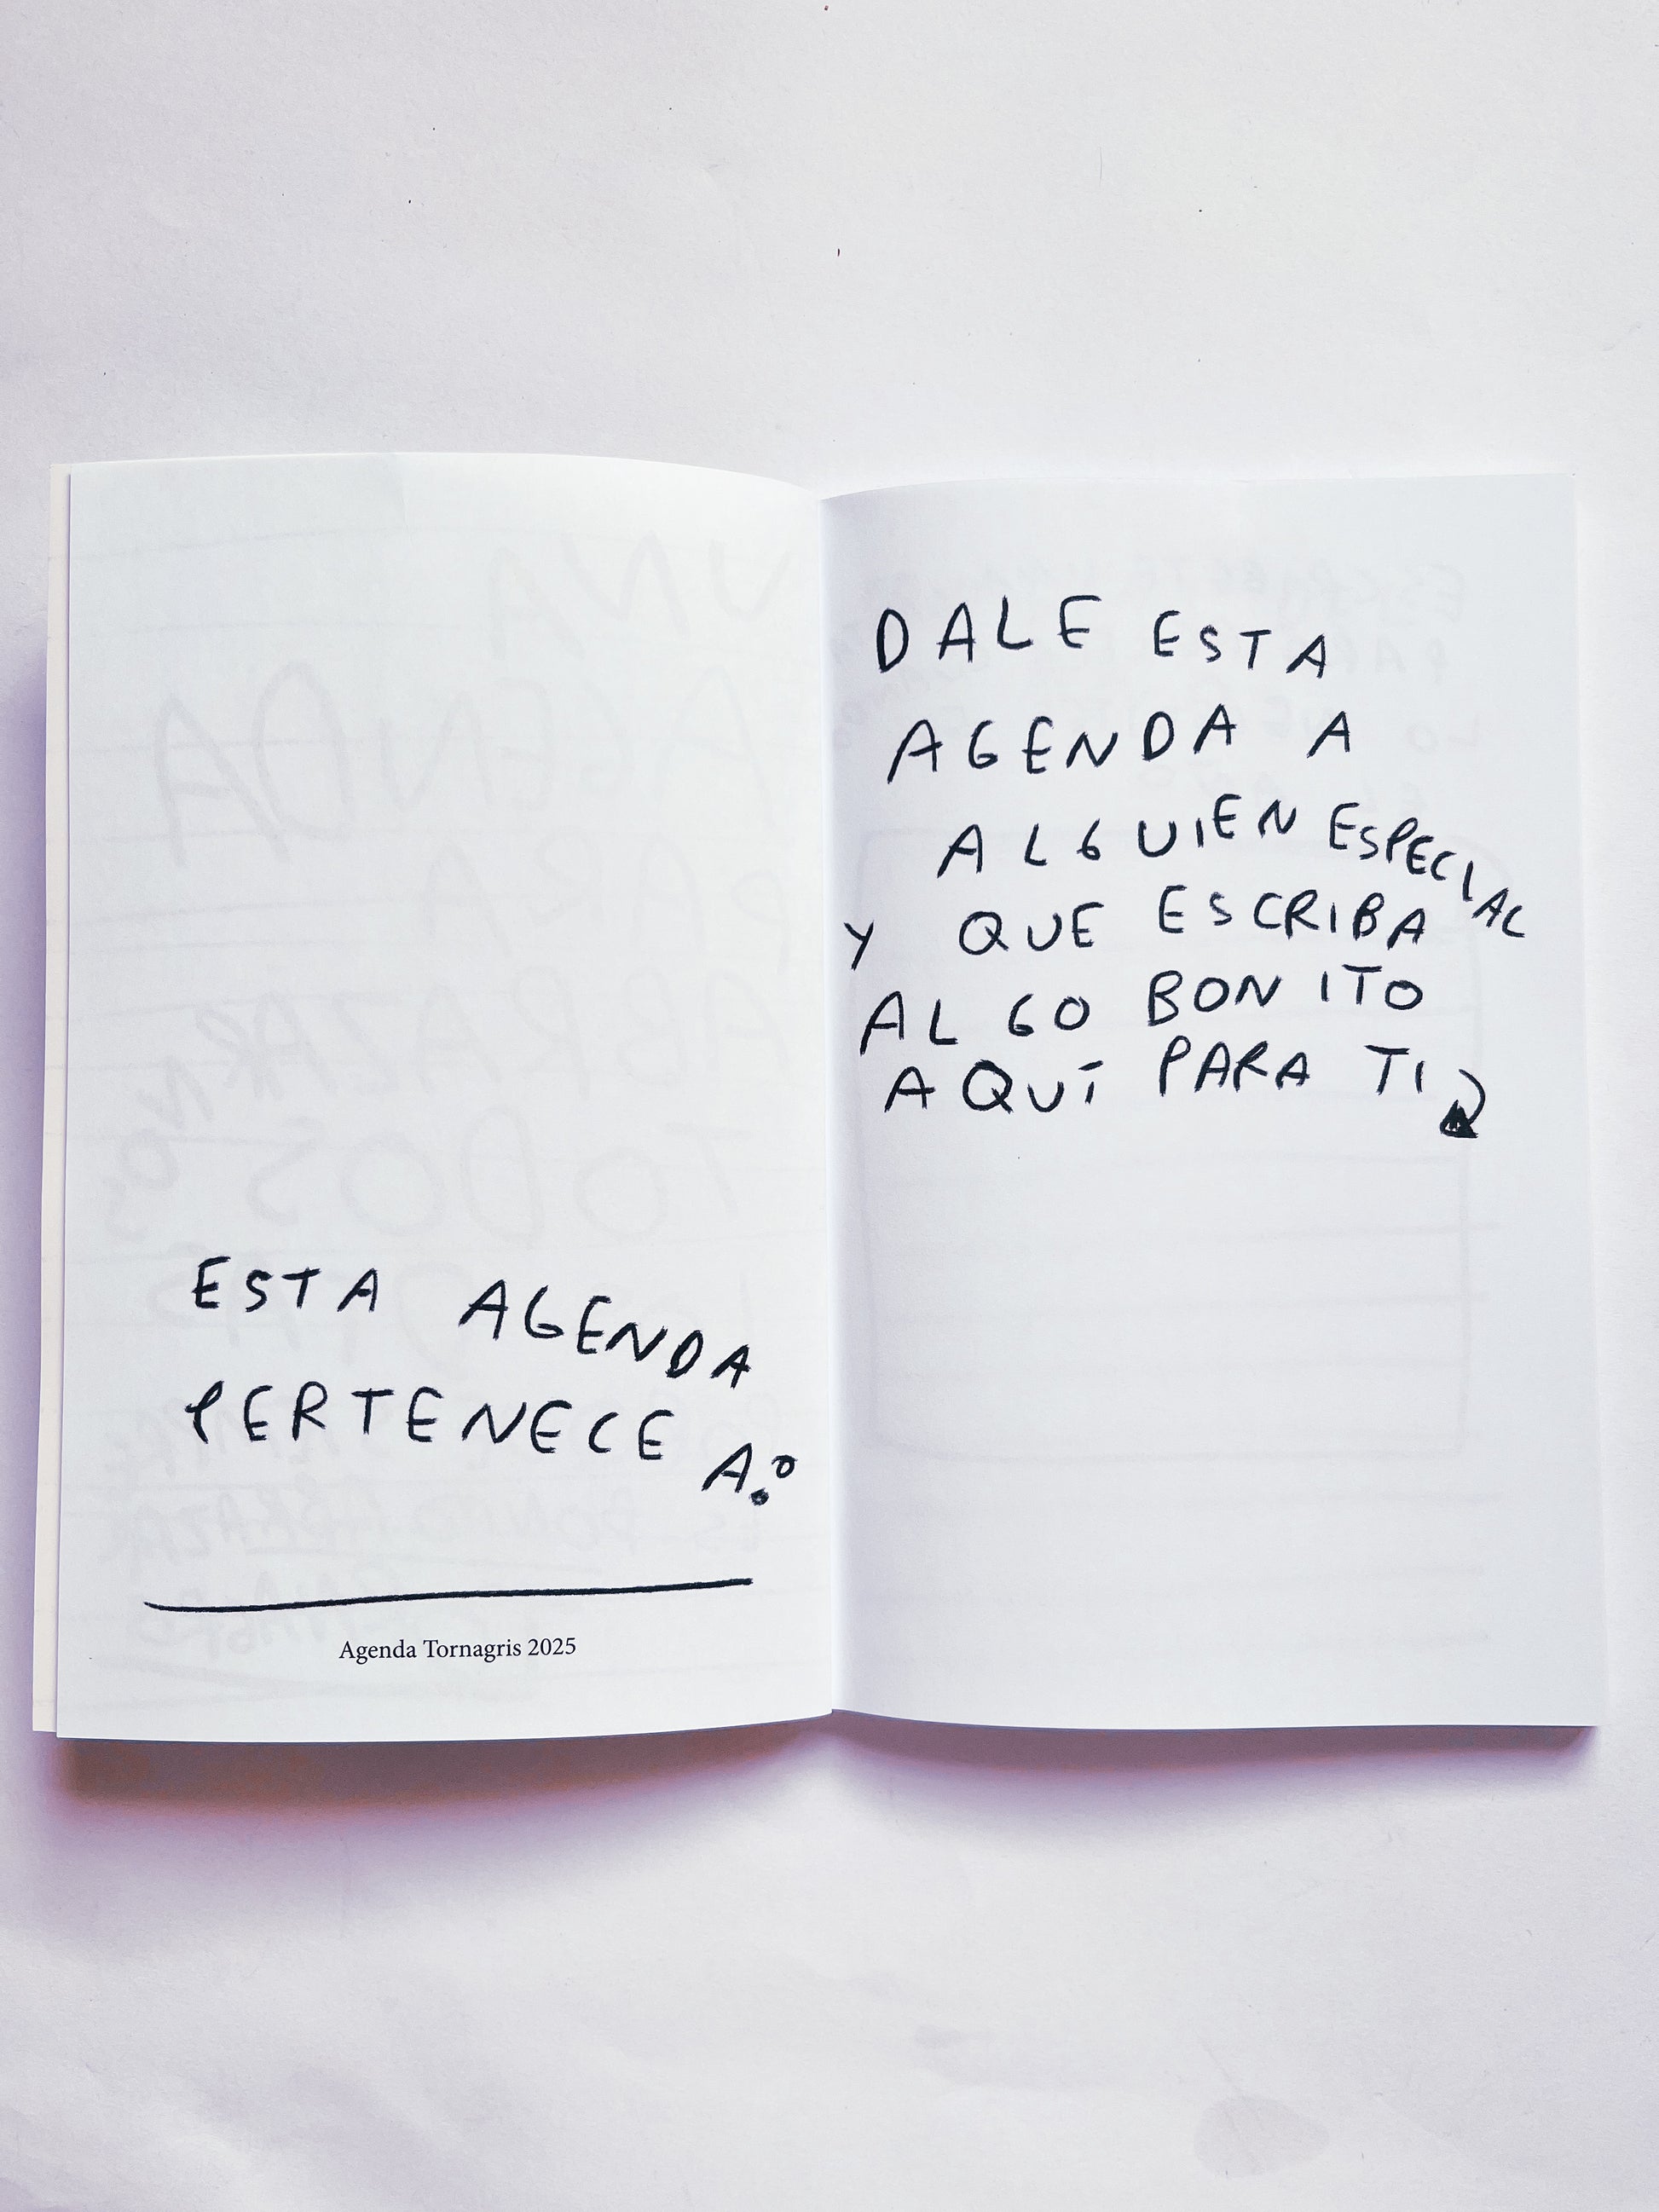 ESTA AGENDA
PERTENECE A:
Agenda Tornagris 2025
DALE ESTA
AGENDA A
ALGUIEN ESPECIAL
Y QUE ESCRIBA
ALGO BONITO
AQUÍ PARA TI